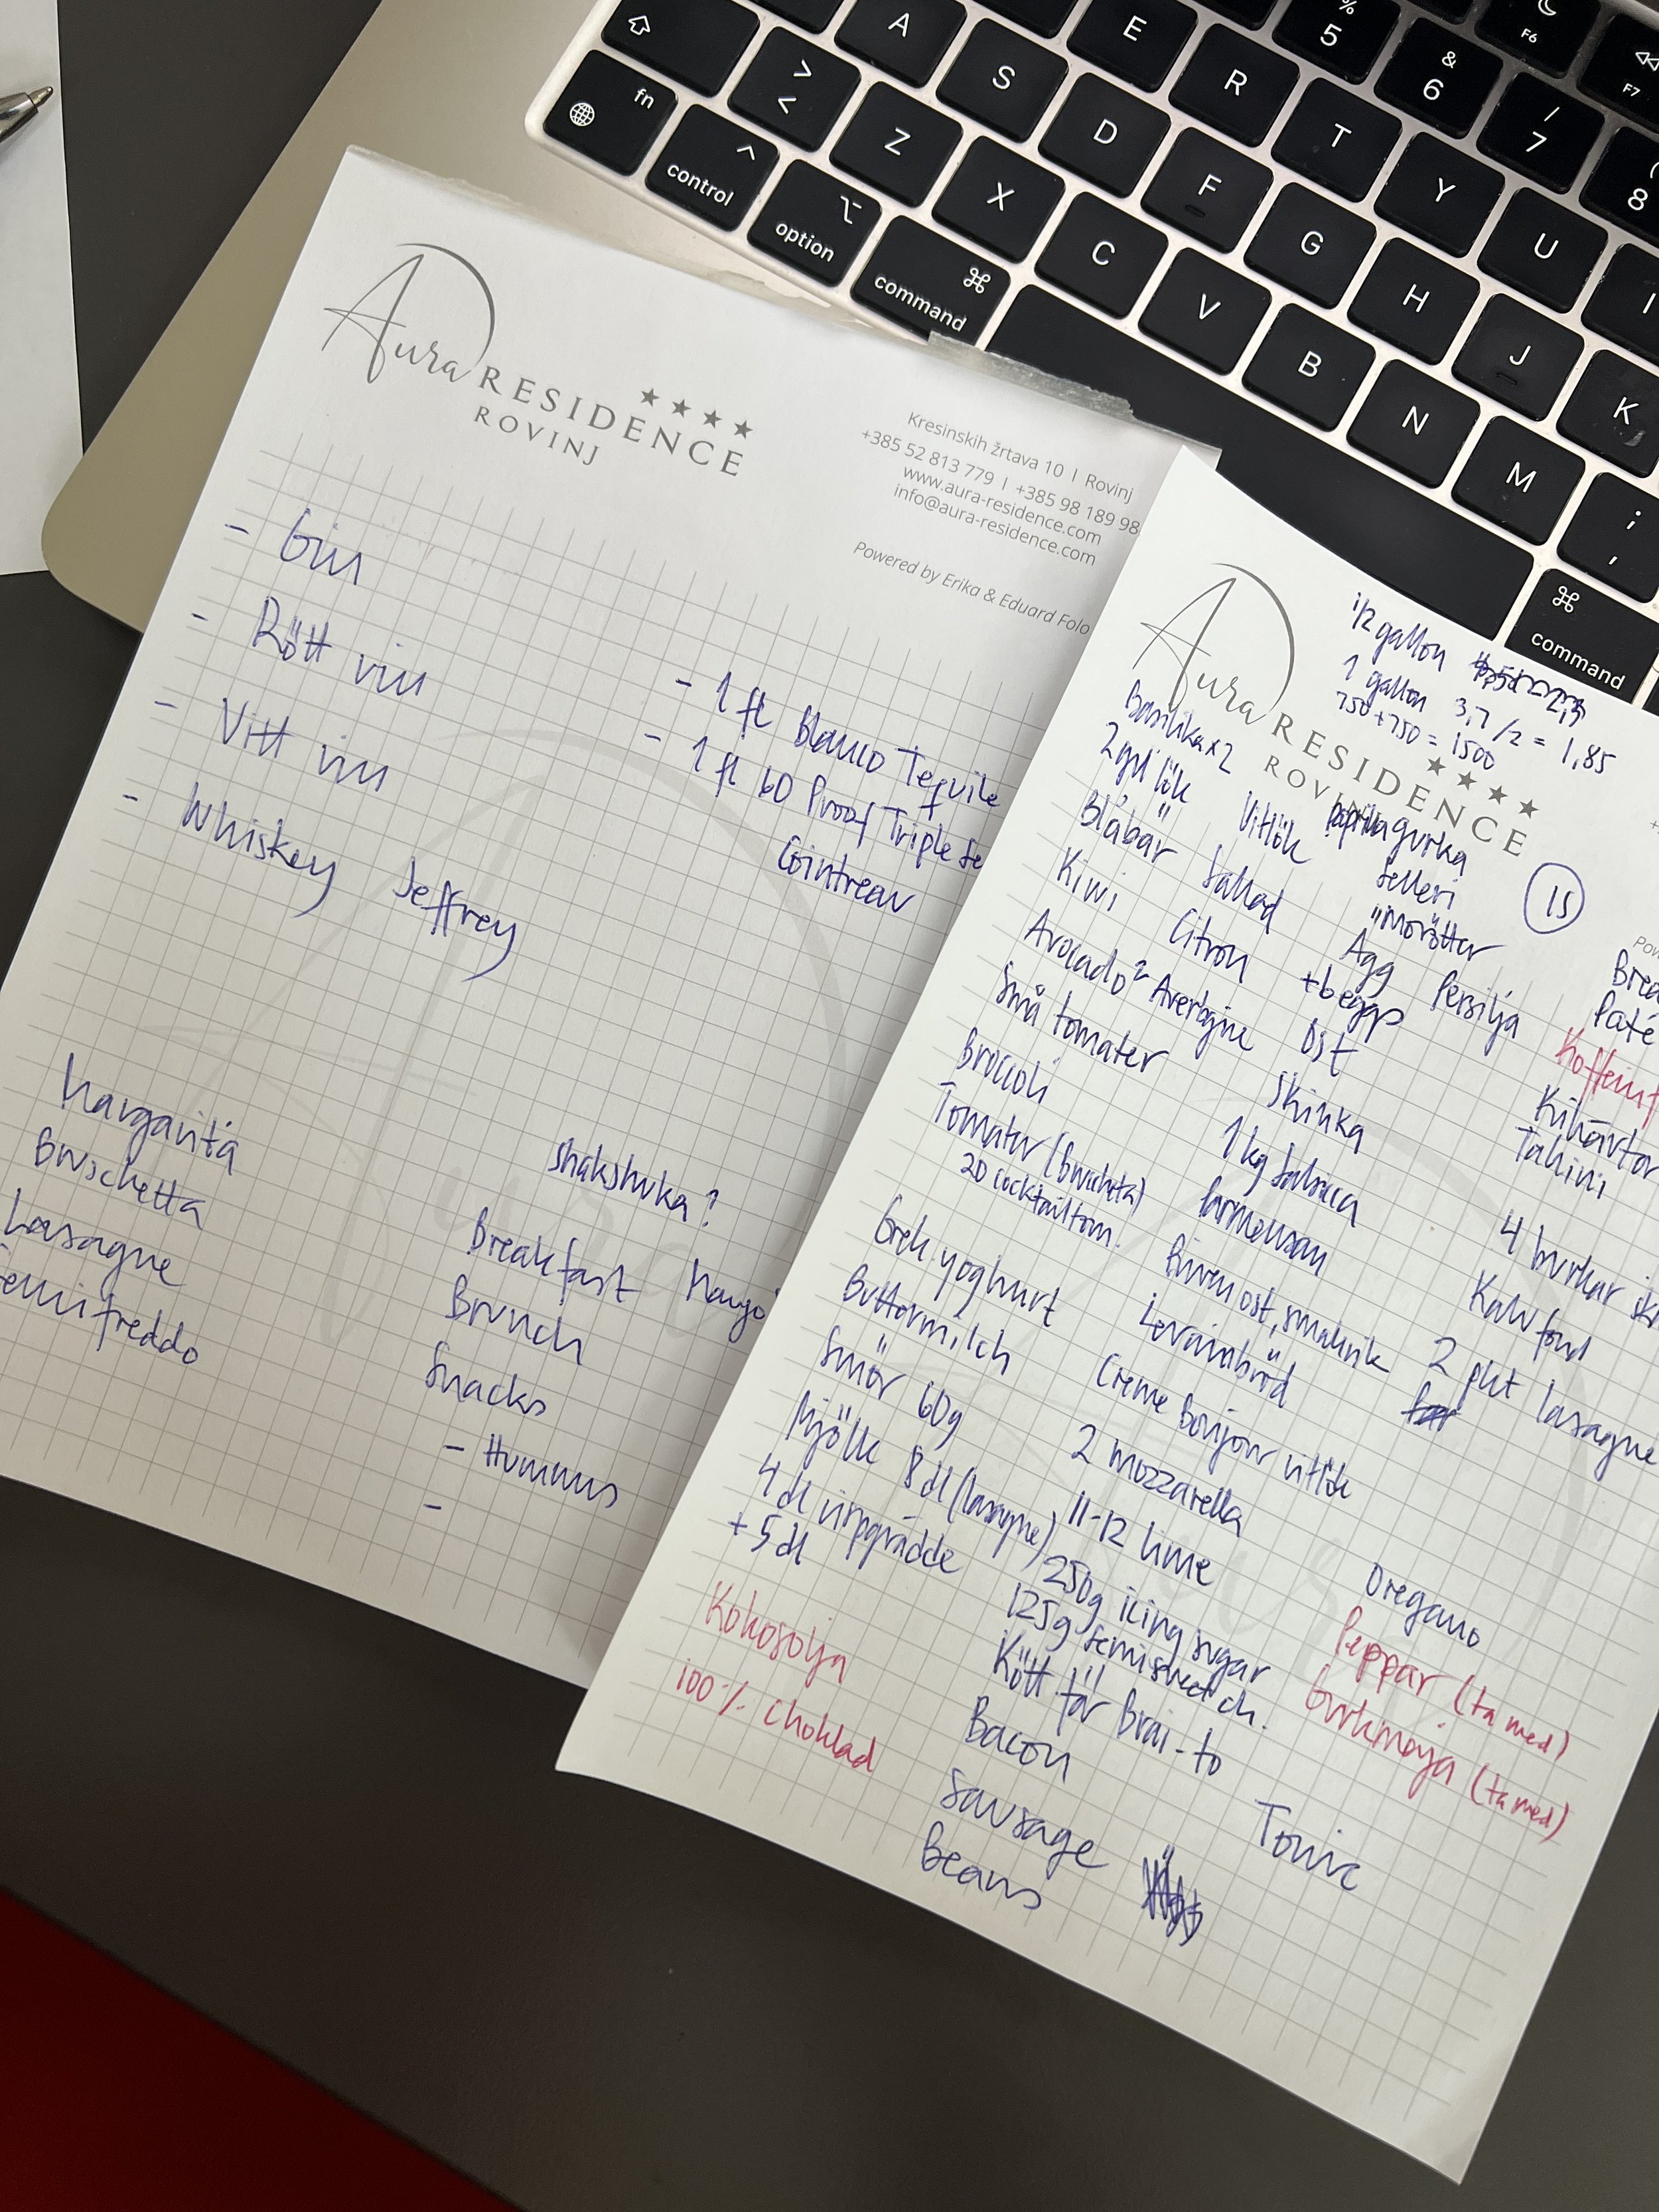 A
E
%
5
F6
F7
fn
>
<
S
R
&
6
control
Z
D
T
/
7
option
X
F
Y
(
8
command
C
G
U
V
H
I
B
J
N
K
M
;
,
command
Aura RESIDENCE
ROVINJ
Kresinskih žrtava 10 | Rovinj
+385 52 813 779 | +385 98 189 98
www.aura-residence.com
info@aura-residence.com
Powered by Erika & Eduard Folo
- Gin
- Rött vin
- Vitt vin
- Whiskey Jeffrey
- 1 fl Blanco Tequila
- 1 fl 60 Proof Triple Se
Cointreau
Margarita
Bruschetta
Lasagne
Semifreddo
Shakshuka?
Breakfast Mango
Brunch
Snacks
- Hummus
-
Aura RESIDENCE
ROVINJ
1/2 gallon
1 gallon 3,7/2 = 1,85
750+750 = 1500
Basilika x2
2 gul lök
Blåbär
Kiwi
Avocado 2
Små tomater
Broccoli
Tomater (bruscheta)
20 cocktailtom.
Grek. yoghurt
Buttermilch
Smör 60g
Mjölk 8 dl (lasagne)
4 dl vispgrädde
+ 5 dl
Kokosolja
100% choklad
Vitlök
Sallad
Citron
gurka
Selleri
morötter
Ägg
Persilja
Ost
Skinka
1 kg Salsicca
Parmesan
Riven ost, smakrik
Levainbröd
Creme Bonjour vitlök
2 mozzarella
11-12 lime
250g icing sugar
125g semisweet ch.
Kött för Brai-to
Bacon
Sausage
Beans
IS
Paté
Kikärtor
Tahini
4 burkar
Kalvfond
2 pkt lasagne
Oregano
Peppar (ta med)
Gurkmeja (ta med)
Tonic